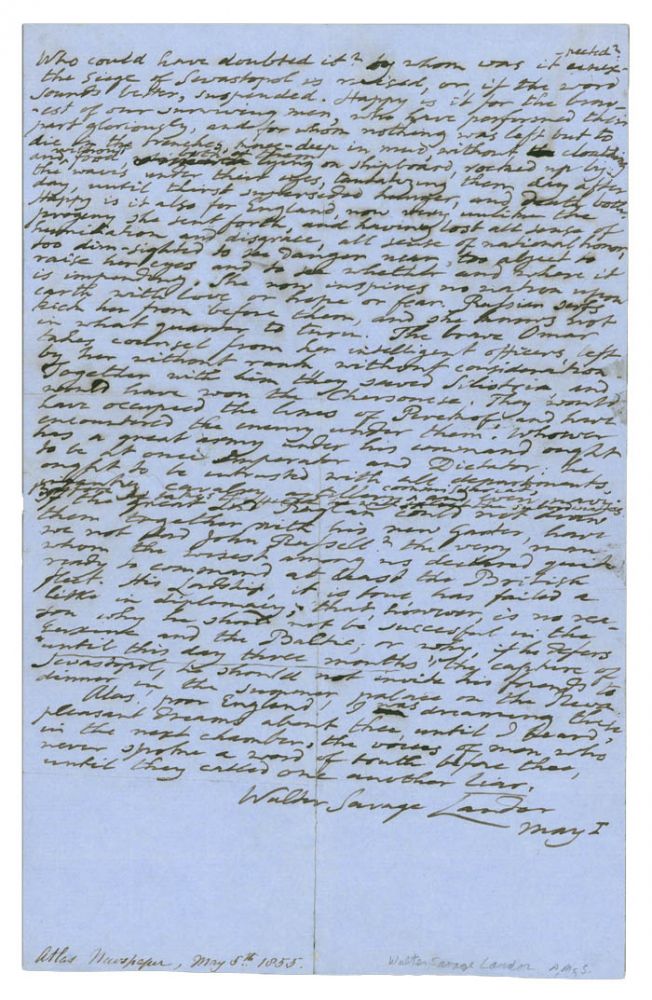 -pected?
Who could have doubted it? by whom was it unex-
the siege of Sevastopol is raised, or, if the word
sounds better, suspended. Happy is it for the brav-
-est of our surviving men, who have performed their
part gloriously, and for whom nothing was left but to
die in the trenches, knee-deep in mud, without clothing
and food, lying on shipboard, rocked up by
the waves under their eyes, tantalizing them day after
day, until thirst superseded hunger, and death both.
Happy is it also for England, now very unlike the
progeny she sent forth, and having lost all sense of
humiliation and disgrace, all sense of national honor,
too dimsighted to see danger near, too abject to
raise her eyes and to see whether and where it
is impending. She now inspires no nation upon
earth with love or hope or fear. Russian serfs
kick her from before them, and she knows not
in what quarter to turn. The brave Omar
takes counsel from her intelligent officers, left
by her without rank, without consideration.
Together with him they saved Silistria and
would have won the Chersonese. They would
have occupied the lines of Perekop and have
encountered the enemy under them. Whoever
has a great army under his command ought
to be at once Imperator and Dictator: he
ought to be intrusted with all departments,
cavalry, artillery, and even navi-
of the Great Lord
them together with his new Gades, have
we not Lord John Russell? the very man
whom the wisest among us declared quite
ready to command at least the British
fleet. His Lordship, it is true has failed a
little in diplomacy; that, however, is no rea-
son why he should not be successful in the
Euxine and the Baltic, or why, if he defers
"until this day three months", the capture of
Sevastopol, he should not invite his friends to
dinner in the summer palace on the Neva.
Alas, poor England! I was dreaming these
pleasant dreams about thee, until I heard,
in the next chamber, the voices of men who
never spoke a word of truth before thee,
until they called one another liar.
Walter Savage Landor
May 1
Atlas Newspaper, May 5th 1855.
Walter Savage Landor AMsS.